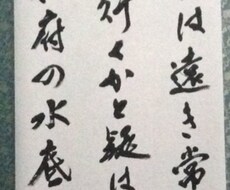 は遠き常
行くかと疑は
府の水底